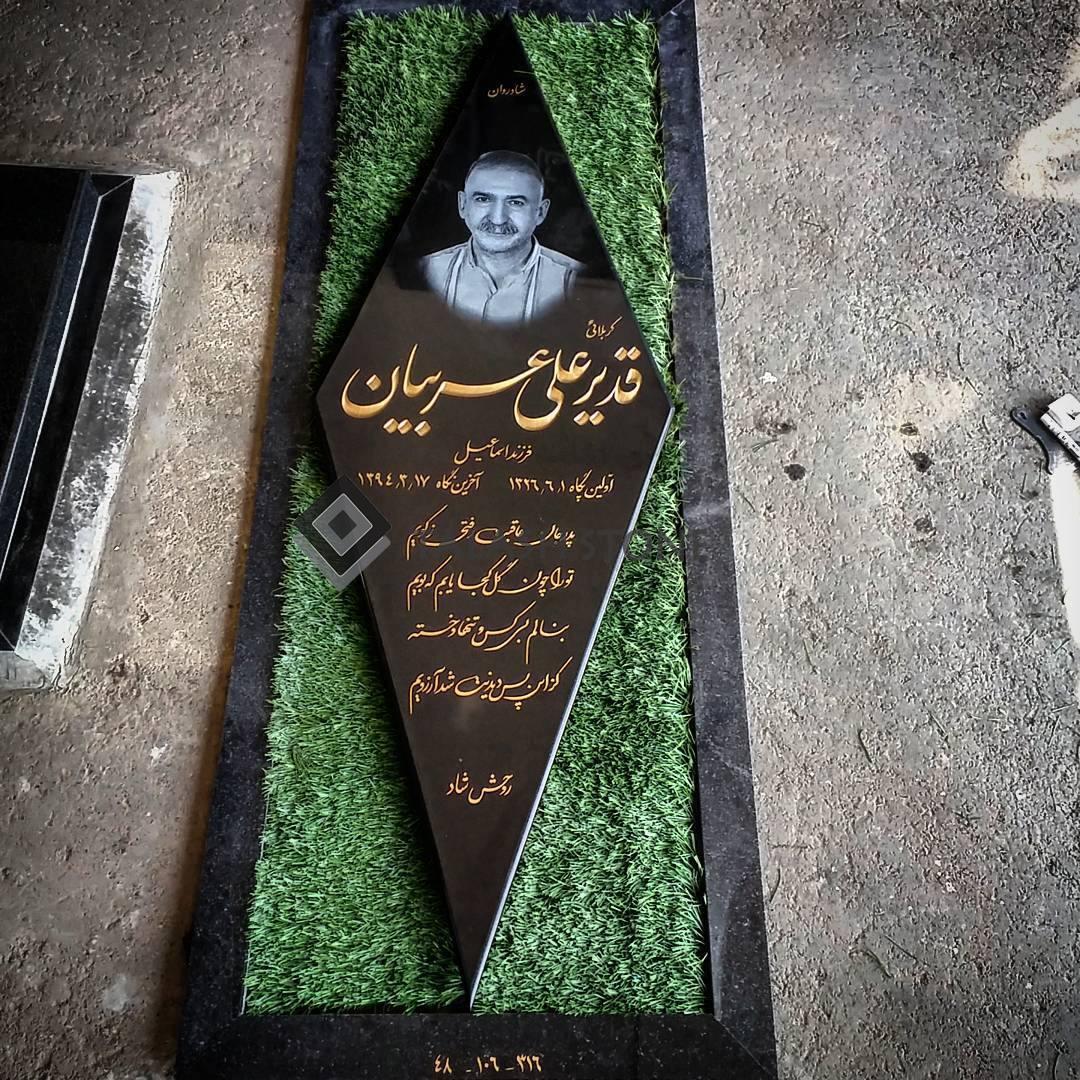 شادروان
کربلائی
قدیرعلی عربیان
فرزند اسماعیل
اولین نگاه ۱٫۶٫۱۳۲۶ آخرین نگاه ۱۷٫۳٫۱۳۹۴
پدر عاقبت رفتی ز کویم
تو را چون گل کجا یابم که بویم
بنالم بی کس و تنها و خسته
کز این پس دیدنت شد آرزویم
روحش شاد
۳۱۶ - ۱۰۶ - ۴۸